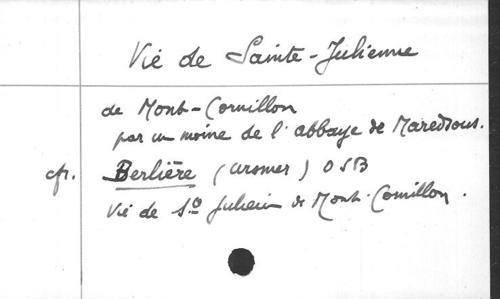 Vie de Sainte-Julienne
de Mont-Cornillon
par un moine de l'abbaye de Maredsous.
cfr. Berlière (Ursmer) OSB
Vie de Ste Julienne de Mont-Cornillon.